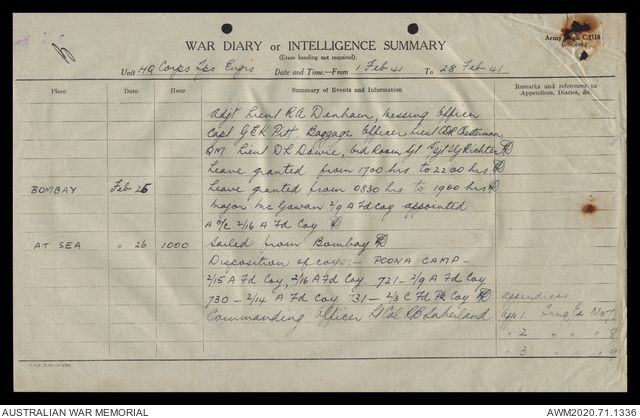 WAR DIARY or INTELLIGENCE SUMMARY
(Erase heading not required).
Army Form C.2118
(Adapted.)
Unit HQ Corps Tps Engrs Date and Time—From 1 Feb 41 To 28 Feb 41
Place Date Hour Summary of Events and Information Remarks and references to Appendices, Diaries, &c.
Adjt Lieut R A Denham, Messing Officer
Capt G E K Pitt, Baggage Officer Lieut
QM Lieut D L Dowie, Ord Room Sgt
Leave granted from 1700 hrs to 2200 hrs
BOMBAY Feb 25 Leave granted from 0830 hrs to 1900 hrs
Major McGowan 2/9 A Fd Coy appointed
A O/C 2/16 A Fd Coy
AT SEA " 26 1000 Sailed from Bombay
Disposition of coys:— POONA CAMP—
2/15 A Fd Coy, 2/16 A Fd Coy 721 — 2/9 A Fd Coy
730 — 2/14 A Fd Coy '31 — 2/3 C Fd Pk Coy
appendices
Commanding Officer Lt Col
1. No 7
" 2 " " 8
3 " " 9
AUSTRALIAN WAR MEMORIAL
AWM2020.71.1336